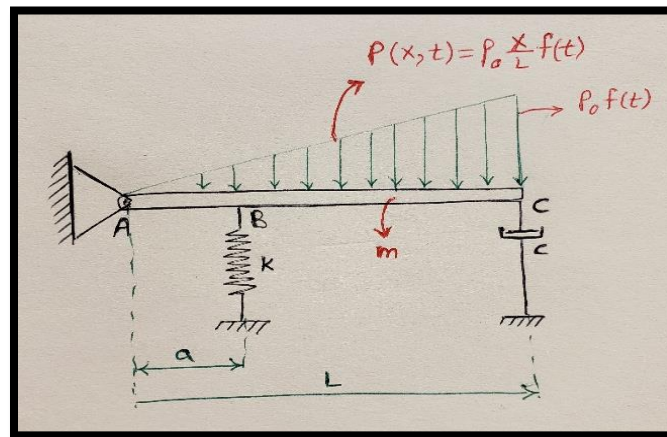 P(x,t) = P₀ x/L f(t)
P₀ f(t)
A
B
C
K
m
c
a
L